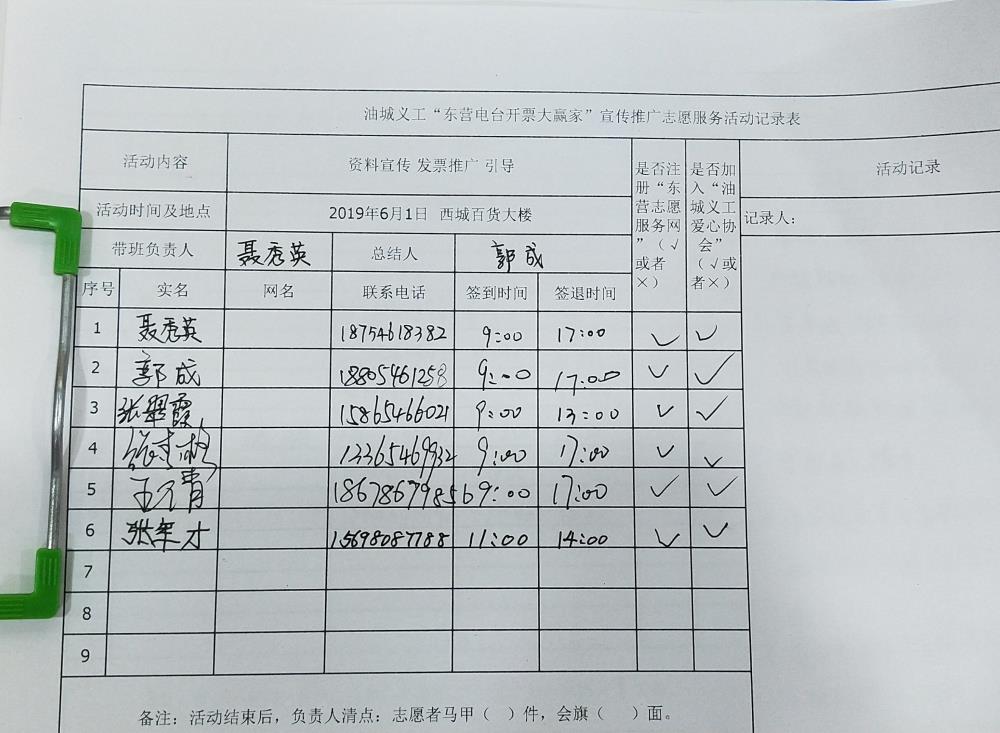 油城义工“东营电台开票大赢家”宣传推广志愿服务活动记录表
活动内容 资料宣传 发票推广 引导 是否注册“东营志愿服务网”（√或者×） 是否加入“油城义工爱心协会”（√或者×） 活动记录
活动时间及地点 2019年6月1日 西城百货大楼 记录人：
带班负责人 聂秀英 总结人 郭成
序号 实名 网名 联系电话 签到时间 签退时间
1 聂秀英 18754618382 9:00 17:00 ✓ ✓
2 郭成 18805461258 9:00 17:00 ✓ ✓
3 张翠霞 15865466021 9:00 13:00 ✓ ✓
4 13365469932 9:00 17:00 ✓ ✓
5 18678679856 9:00 17:00 ✓ ✓
6 15698087788 11:00 14:00 ✓ ✓
7
8
9
备注：活动结束后，负责人清点：志愿者马甲（ ）件，会旗（ ）面。